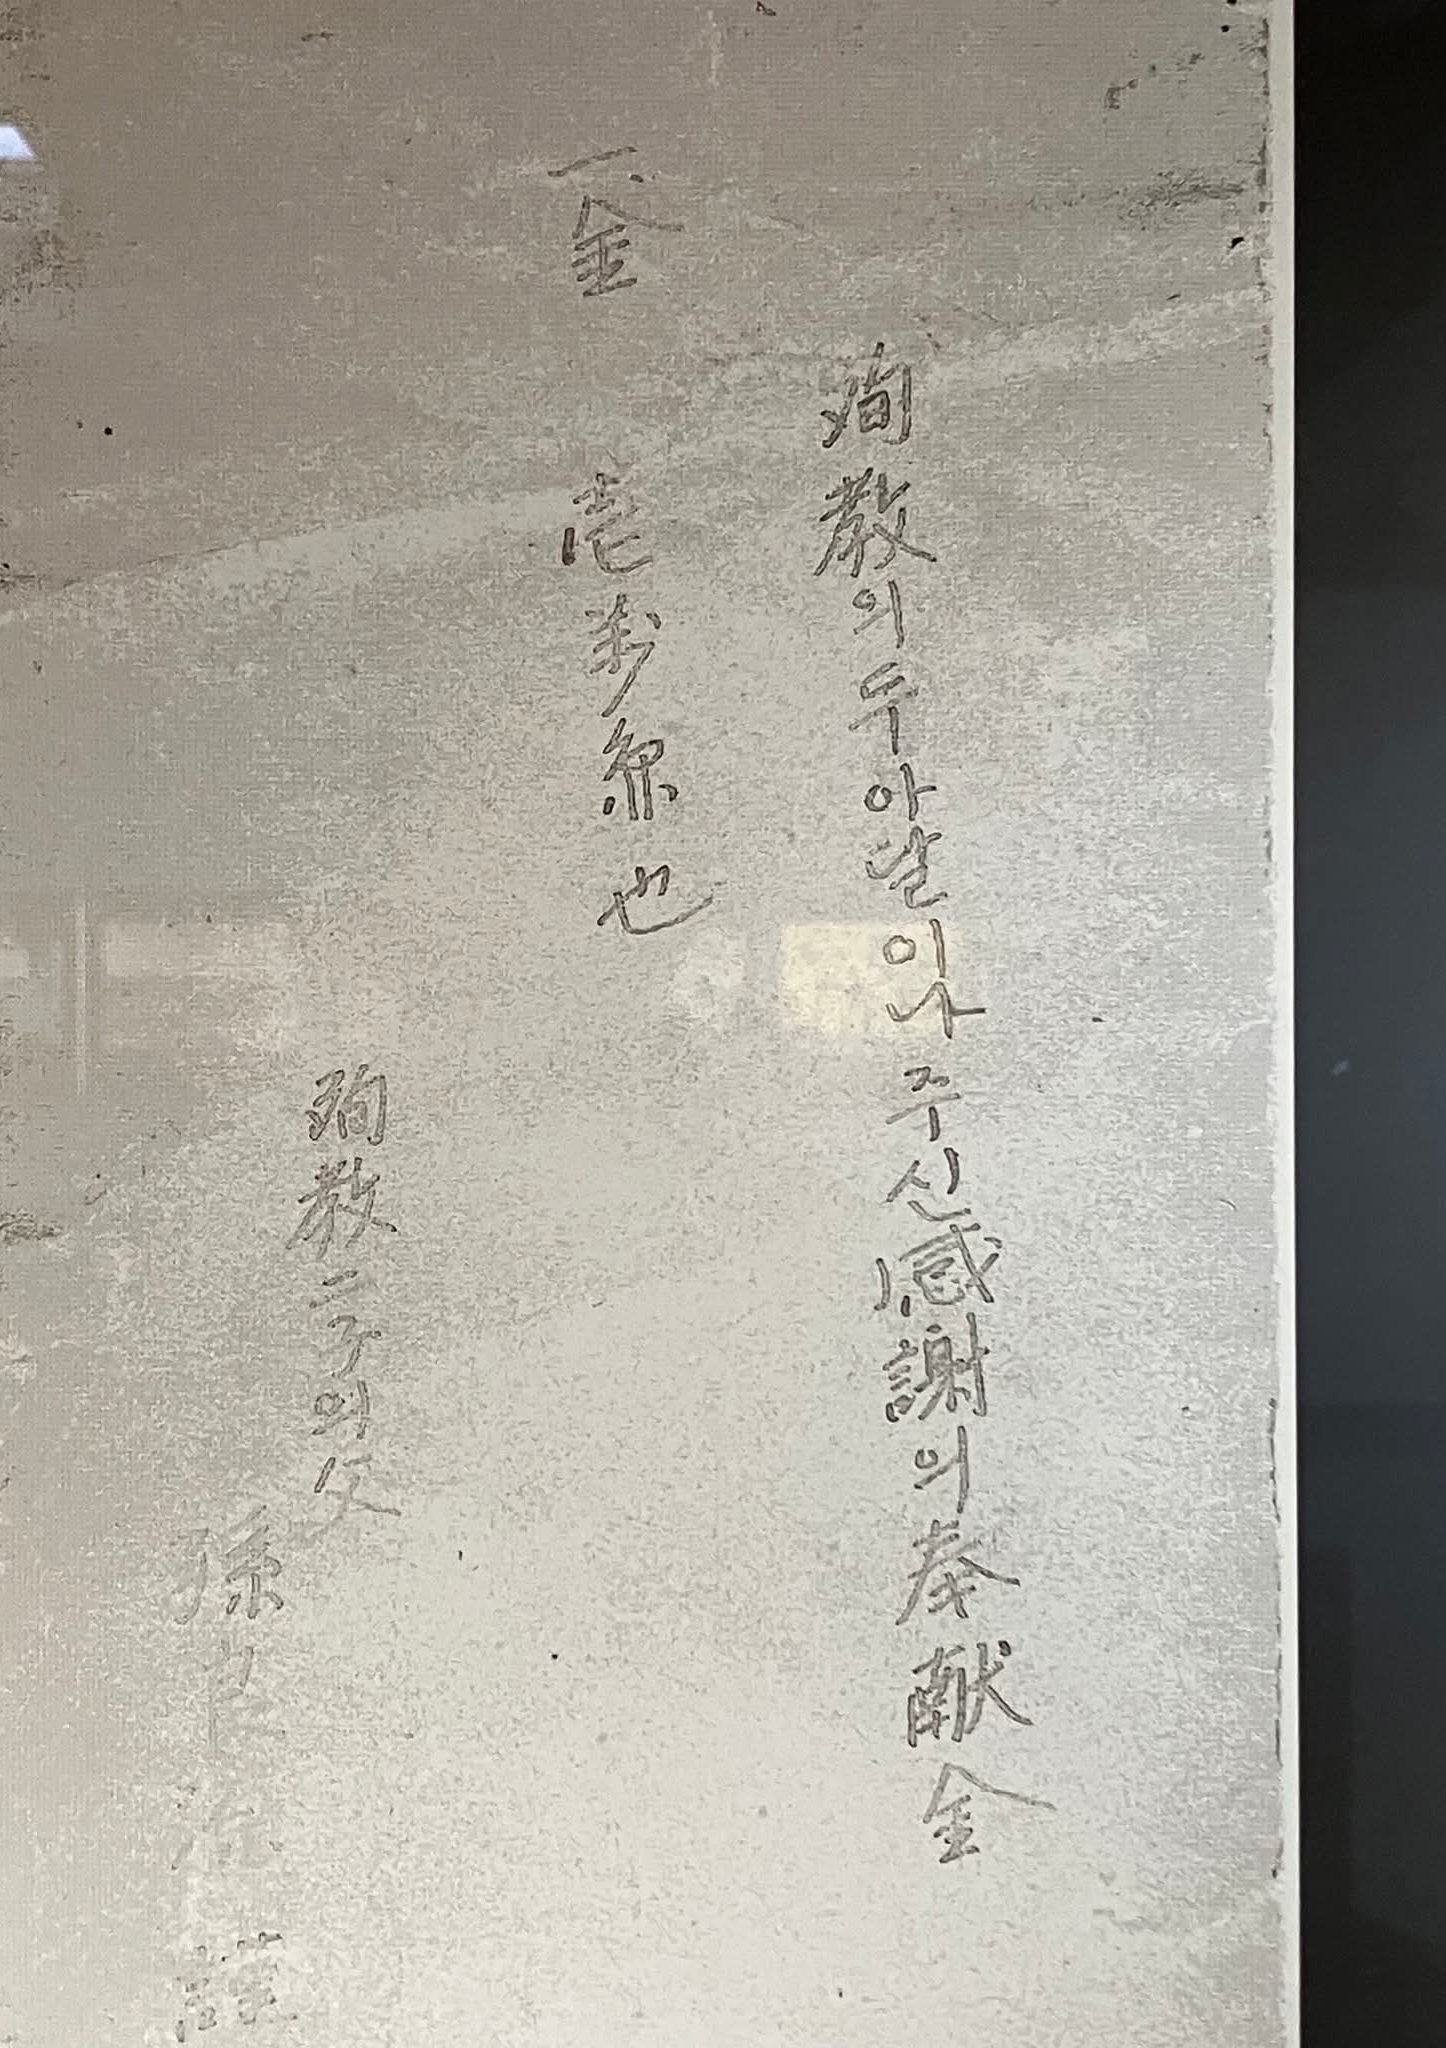 殉敎의 두 아달이나 주신 感謝의 奉献金
一金 壱萬原也
殉敎二子의 父
孫良源 謹